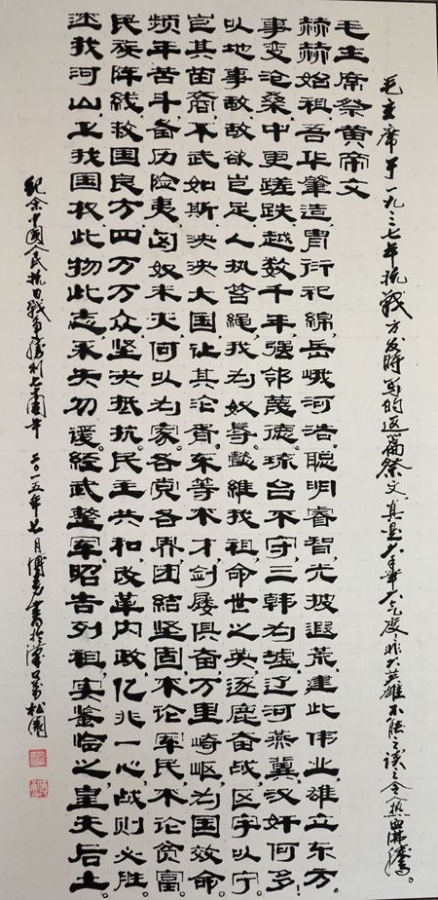 毛主席于一九三七年抗战方发时写的这篇祭文,真是大手笔大气度,非大英雄不能之,读之令人热血沸腾。
毛主席祭黄帝文
赫赫始祖,吾华肇造,胄衍祀绵,岳峨河浩。聪明睿智,光披遐荒,建此伟业,雄立东方。
事变沧桑,中更蹉跌,越数千年,强邻蔑德。琉台不守,三韩为墟,辽河燕冀,汉奸何多!
以地事敌,敌欲岂足,人执笞绳,我为奴辱。懿维我祖,命世之英,逐鹿奋战,区宇以宁。
岂其苗裔,不武如斯,泱泱大国,让其沦胥。东等不才,剑屦俱奋,万里崎岖,为国效命。
频年苦斗,备历险夷,匈奴未灭,何以为家。各党各界,团结坚固,不论军民,不论贫富。
民族阵线,救国良方,四万万众,坚决抵抗。民主共和,改革内政,亿兆一心,战则必胜。
还我河山,卫我国权,此物此志,永矢勿谖。经武整军,昭告列祖,实鉴临之,皇天后土。
纪念中国人民抗日战争胜利七十周年 二〇一五年七月